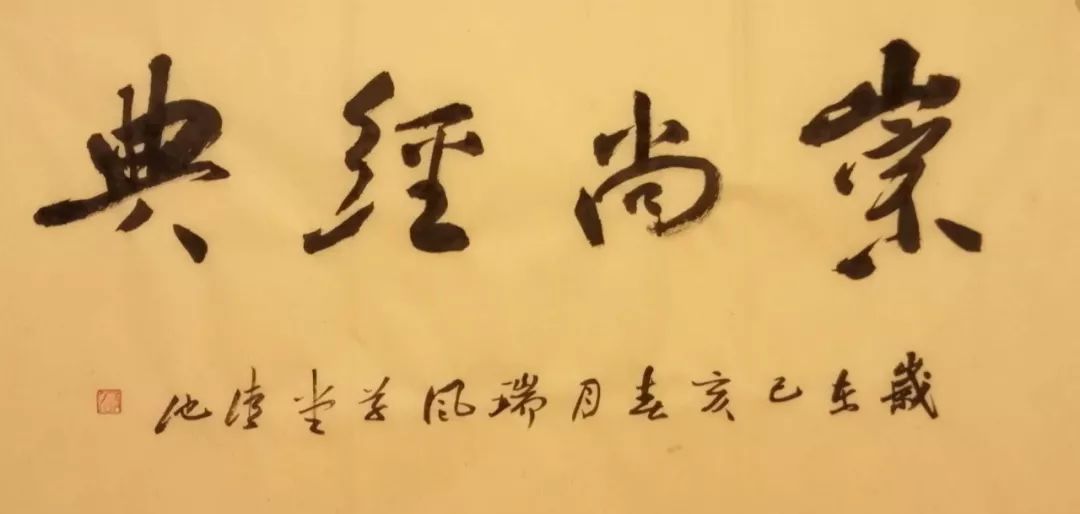 崇尚經典
歲在己亥春月瑞風草堂池